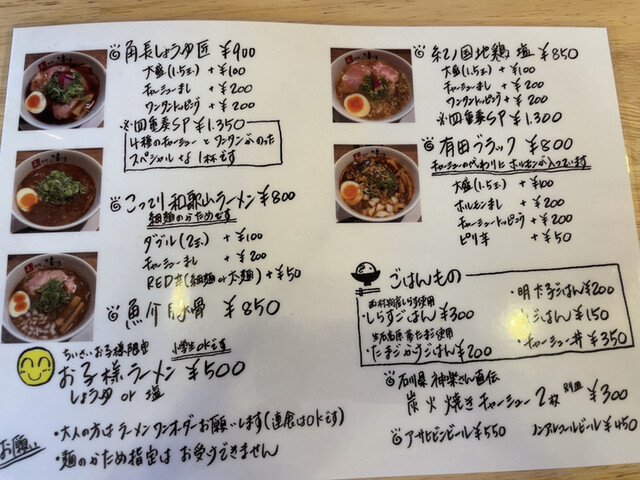 角長しょうゆ匠 ¥900
大盛(1.5玉) +¥100
チャーシューまし +¥200
ワンタントッピング +¥200
※四重奏SP ¥1,350
4種のチャーシューとワンタンがのった
スペシャルな1杯です
こってり和歌山ラーメン ¥800
細麺のかためです
ダブル(2玉) +¥100
チャーシューまし +¥200
RED辛(細麺or太麺) +¥50
魚介豚骨 ¥850
ちいさいお子様限定
小学生OKです
お子様ラーメン ¥500
しょうゆ or 塩
お願い
・大人の方はラーメンワンオーダーお願いします(連食はOKです)
・麺のかため指定はお受けできません
紀ノ国地鶏 塩 ¥850
大盛(1.5玉) +¥100
チャーシューまし +¥200
ワンタントッピング +¥200
※四重奏SP ¥1,300
有田ブラック ¥800
チャーシューのかわりにホルモンが入っています
大盛(1.5玉) +¥100
ホルモンまし +¥200
チャーシュートッピング +¥200
ピリ辛 +¥50
ごはんもの
・しらすごはん ¥300
・たまごかけごはん ¥200
・明太子ごはん ¥200
・ごはん ¥150
・チャーシュー丼 ¥350
石川県 神楽さん直伝
炭火焼きチャーシュー2枚 別皿 ¥300
アサヒビンビール ¥550
ノンアルコールビール ¥450